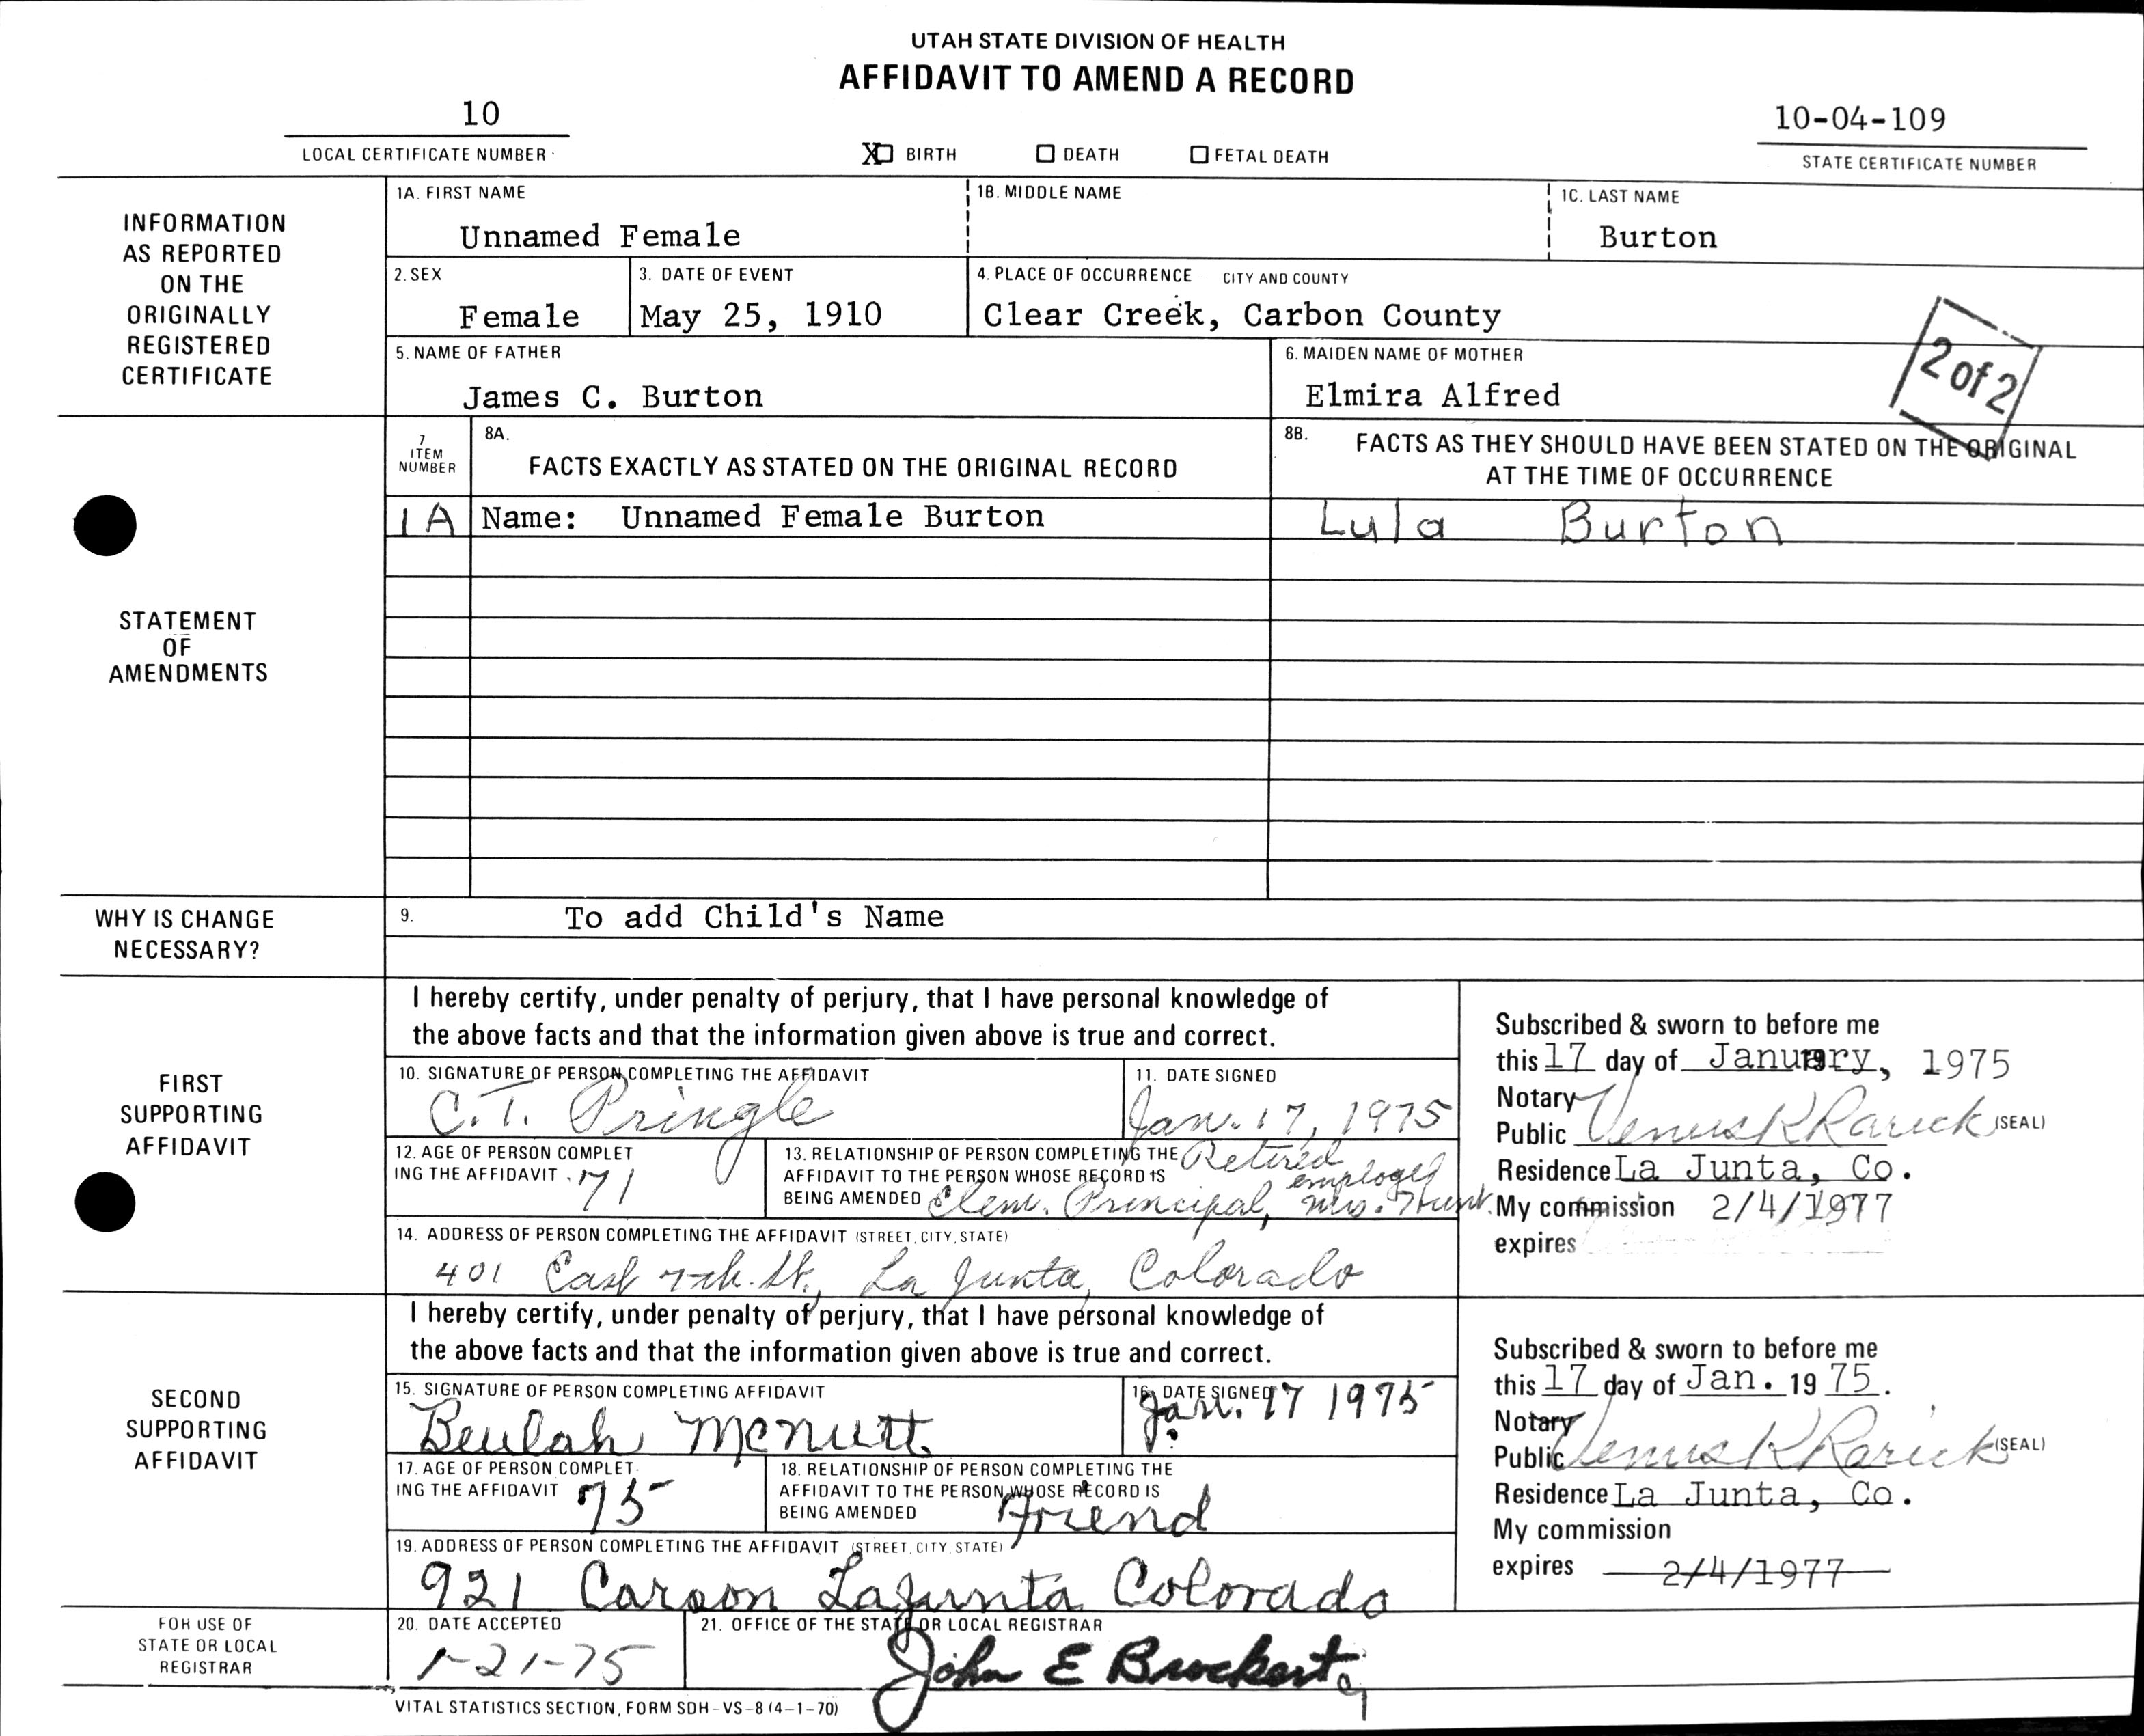 UTAH STATE DIVISION OF HEALTH
AFFIDAVIT TO AMEND A RECORD
10
LOCAL CERTIFICATE NUMBER
X BIRTH DEATH FETAL DEATH
10-04-109
STATE CERTIFICATE NUMBER
INFORMATION
AS REPORTED
ON THE
ORIGINALLY
REGISTERED
CERTIFICATE
1A. FIRST NAME 1B. MIDDLE NAME 1C. LAST NAME
Unnamed Female Burton
2. SEX 3. DATE OF EVENT 4. PLACE OF OCCURRENCE CITY AND COUNTY
Female May 25, 1910 Clear Creek, Carbon County
5. NAME OF FATHER 6. MAIDEN NAME OF MOTHER
James C. Burton Elmira Alfred
2 of 2
STATEMENT
OF
AMENDMENTS
7
ITEM
NUMBER
8A.
FACTS EXACTLY AS STATED ON THE ORIGINAL RECORD
8B. FACTS AS THEY SHOULD HAVE BEEN STATED ON THE ORIGINAL
AT THE TIME OF OCCURRENCE
1A Name: Unnamed Female Burton Lula Burton
WHY IS CHANGE
NECESSARY?
9. To add Child's Name
FIRST
SUPPORTING
AFFIDAVIT
I hereby certify, under penalty of perjury, that I have personal knowledge of
the above facts and that the information given above is true and correct.
10. SIGNATURE OF PERSON COMPLETING THE AFFIDAVIT 11. DATE SIGNED
C.T. Pringle Jan. 17, 1975
12. AGE OF PERSON COMPLET
ING THE AFFIDAVIT. 71
13. RELATIONSHIP OF PERSON COMPLETING THE Retired
AFFIDAVIT TO THE PERSON WHOSE RECORD IS employed
BEING AMENDED Elem. Principal, Mrs. Hunt.
14. ADDRESS OF PERSON COMPLETING THE AFFIDAVIT (STREET, CITY, STATE)
401 East 7th. St., La Junta, Colorado
Subscribed & sworn to before me
this 17 day of January, 19 1975
Notary
Public Venus K Rarick (SEAL)
Residence La Junta, Co.
My commission 2/4/1977
expires
SECOND
SUPPORTING
AFFIDAVIT
I hereby certify, under penalty of perjury, that I have personal knowledge of
the above facts and that the information given above is true and correct.
15. SIGNATURE OF PERSON COMPLETING AFFIDAVIT 16. DATE SIGNED
Beulah McNutt Jan. 17 1975
17. AGE OF PERSON COMPLET-
ING THE AFFIDAVIT 75
18. RELATIONSHIP OF PERSON COMPLETING THE
AFFIDAVIT TO THE PERSON WHOSE RECORD IS
BEING AMENDED Friend
19. ADDRESS OF PERSON COMPLETING THE AFFIDAVIT (STREET, CITY, STATE)
921 Carson LaJunta Colorado
Subscribed & sworn to before me
this 17 day of Jan. 19 75.
Notary
Public Venus K Rarick (SEAL)
Residence La Junta, Co.
My commission
expires 2/4/1977
FOR USE OF
STATE OR LOCAL
REGISTRAR
20. DATE ACCEPTED 21. OFFICE OF THE STATE OR LOCAL REGISTRAR
1-21-75 John E Brockert
VITAL STATISTICS SECTION, FORM SDH-VS-8 (4-1-70)